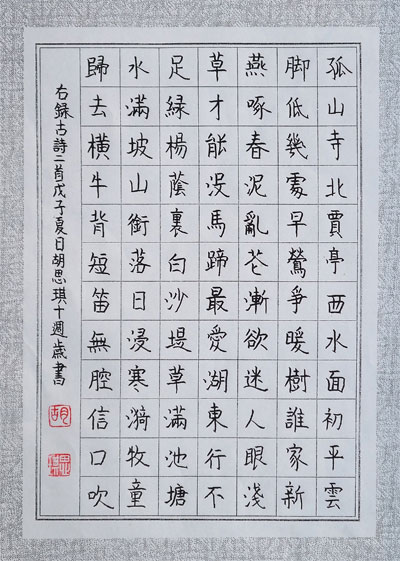 孤山寺北賈亭西水面初平雲
脚低幾處早鶯爭暖樹誰家新
燕啄春泥亂花漸欲迷人眼淺
草才能没馬蹄最愛湖東行不
足緑楊蔭裏白沙堤草滿池塘
水滿坡山銜落日浸寒漪牧童
歸去橫牛背短笛無腔信口吹
右録古詩二首戊子夏日胡思琪十週歲書